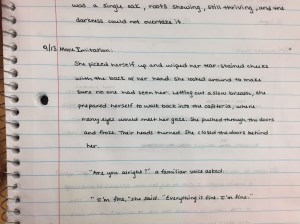 was a single oak, roots showing, still thriving, and the
darkness could not overtake it.
9/13 Movie Imitation:
She picked herself up and wiped her tear-stained cheeks
with the back of her hand. She looked around to make
sure no one had seen her. Letting out a low breath, she
prepared herself to walk back into the cafeteria, where
many eyes would meet her gaze. She pushed through the doors
and froze. Their heads turned. She closed the doors behind
her.
"Are you alright?" a familiar voice asked.
"I'm fine," she said. "Everything is fine. I'm fine."